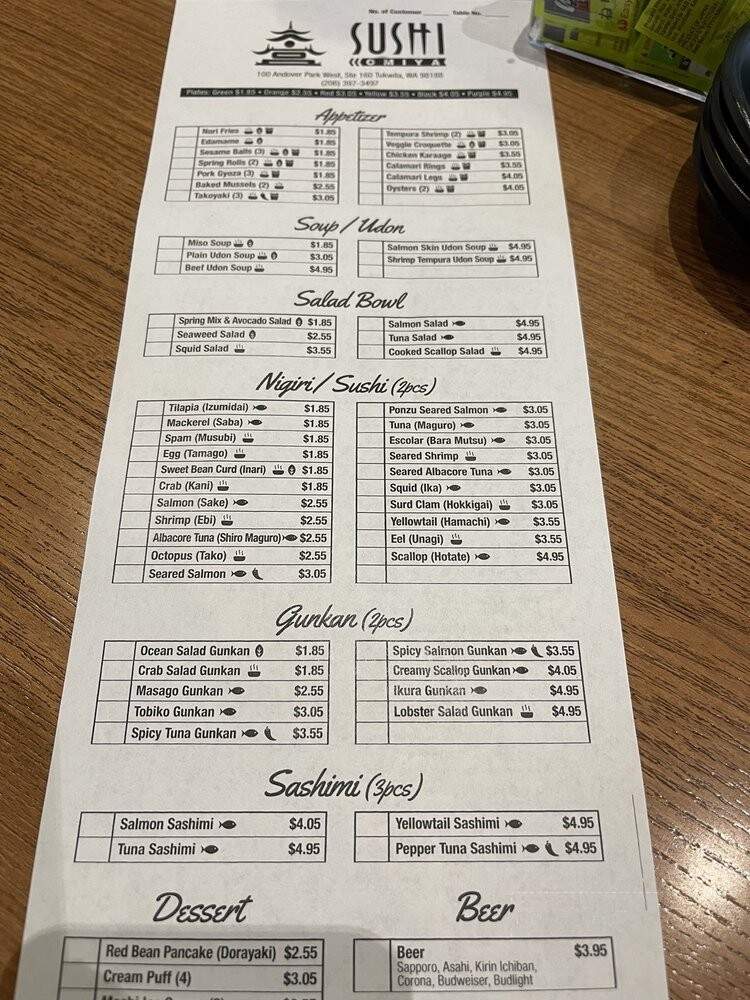 No. of Customer ______ Table No. ______
SUSHI
OMIYA
100 Andover Park West, Ste 160 Tukwila, WA 98188
(206) 397-3497
Plates: Green $1.85 • Orange $2.55 • Red $3.05 • Yellow $3.55 • Black $4.05 • Purple $4.95
Appetizer
Nori Fries $1.85
Edamame $1.85
Sesame Balls (3) $1.85
Spring Rolls (2) $1.85
Pork Gyoza (3) $1.85
Baked Mussels (2) $2.55
Takoyaki (3) $3.05
Tempura Shrimp (2) $3.05
Veggie Croquette $3.05
Chicken Karaage $3.55
Calamari Rings $3.55
Calamari Legs $4.05
Oysters (2) $4.05
Soup / Udon
Miso Soup $1.85
Plain Udon Soup $3.05
Beef Udon Soup $4.95
Salmon Skin Udon Soup $4.95
Shrimp Tempura Udon Soup $4.95
Salad Bowl
Spring Mix & Avocado Salad $1.85
Seaweed Salad $2.55
Squid Salad $3.55
Salmon Salad $4.95
Tuna Salad $4.95
Cooked Scallop Salad $4.95
Nigiri / Sushi (2pcs)
Tilapia (Izumidai) $1.85
Mackerel (Saba) $1.85
Spam (Musubi) $1.85
Egg (Tamago) $1.85
Sweet Bean Curd (Inari) $1.85
Crab (Kani) $1.85
Salmon (Sake) $2.55
Shrimp (Ebi) $2.55
Albacore Tuna (Shiro Maguro) $2.55
Octopus (Tako) $2.55
Seared Salmon $3.05
Ponzu Seared Salmon $3.05
Tuna (Maguro) $3.05
Escolar (Bara Mutsu) $3.05
Seared Shrimp $3.05
Seared Albacore Tuna $3.05
Squid (Ika) $3.05
Surd Clam (Hokkigai) $3.05
Yellowtail (Hamachi) $3.55
Eel (Unagi) $3.55
Scallop (Hotate) $4.95
Gunkan (2pcs)
Ocean Salad Gunkan $1.85
Crab Salad Gunkan $1.85
Masago Gunkan $2.55
Tobiko Gunkan $3.05
Spicy Tuna Gunkan $3.55
Spicy Salmon Gunkan $3.55
Creamy Scallop Gunkan $4.05
Ikura Gunkan $4.95
Lobster Salad Gunkan $4.95
Sashimi (3pcs)
Salmon Sashimi $4.05
Tuna Sashimi $4.95
Yellowtail Sashimi $4.95
Pepper Tuna Sashimi $4.95
Dessert
Red Bean Pancake (Dorayaki) $2.55
Cream Puff (4) $3.05
Beer
Beer $3.95
Sapporo, Asahi, Kirin Ichiban,
Corona, Budweiser, Budlight